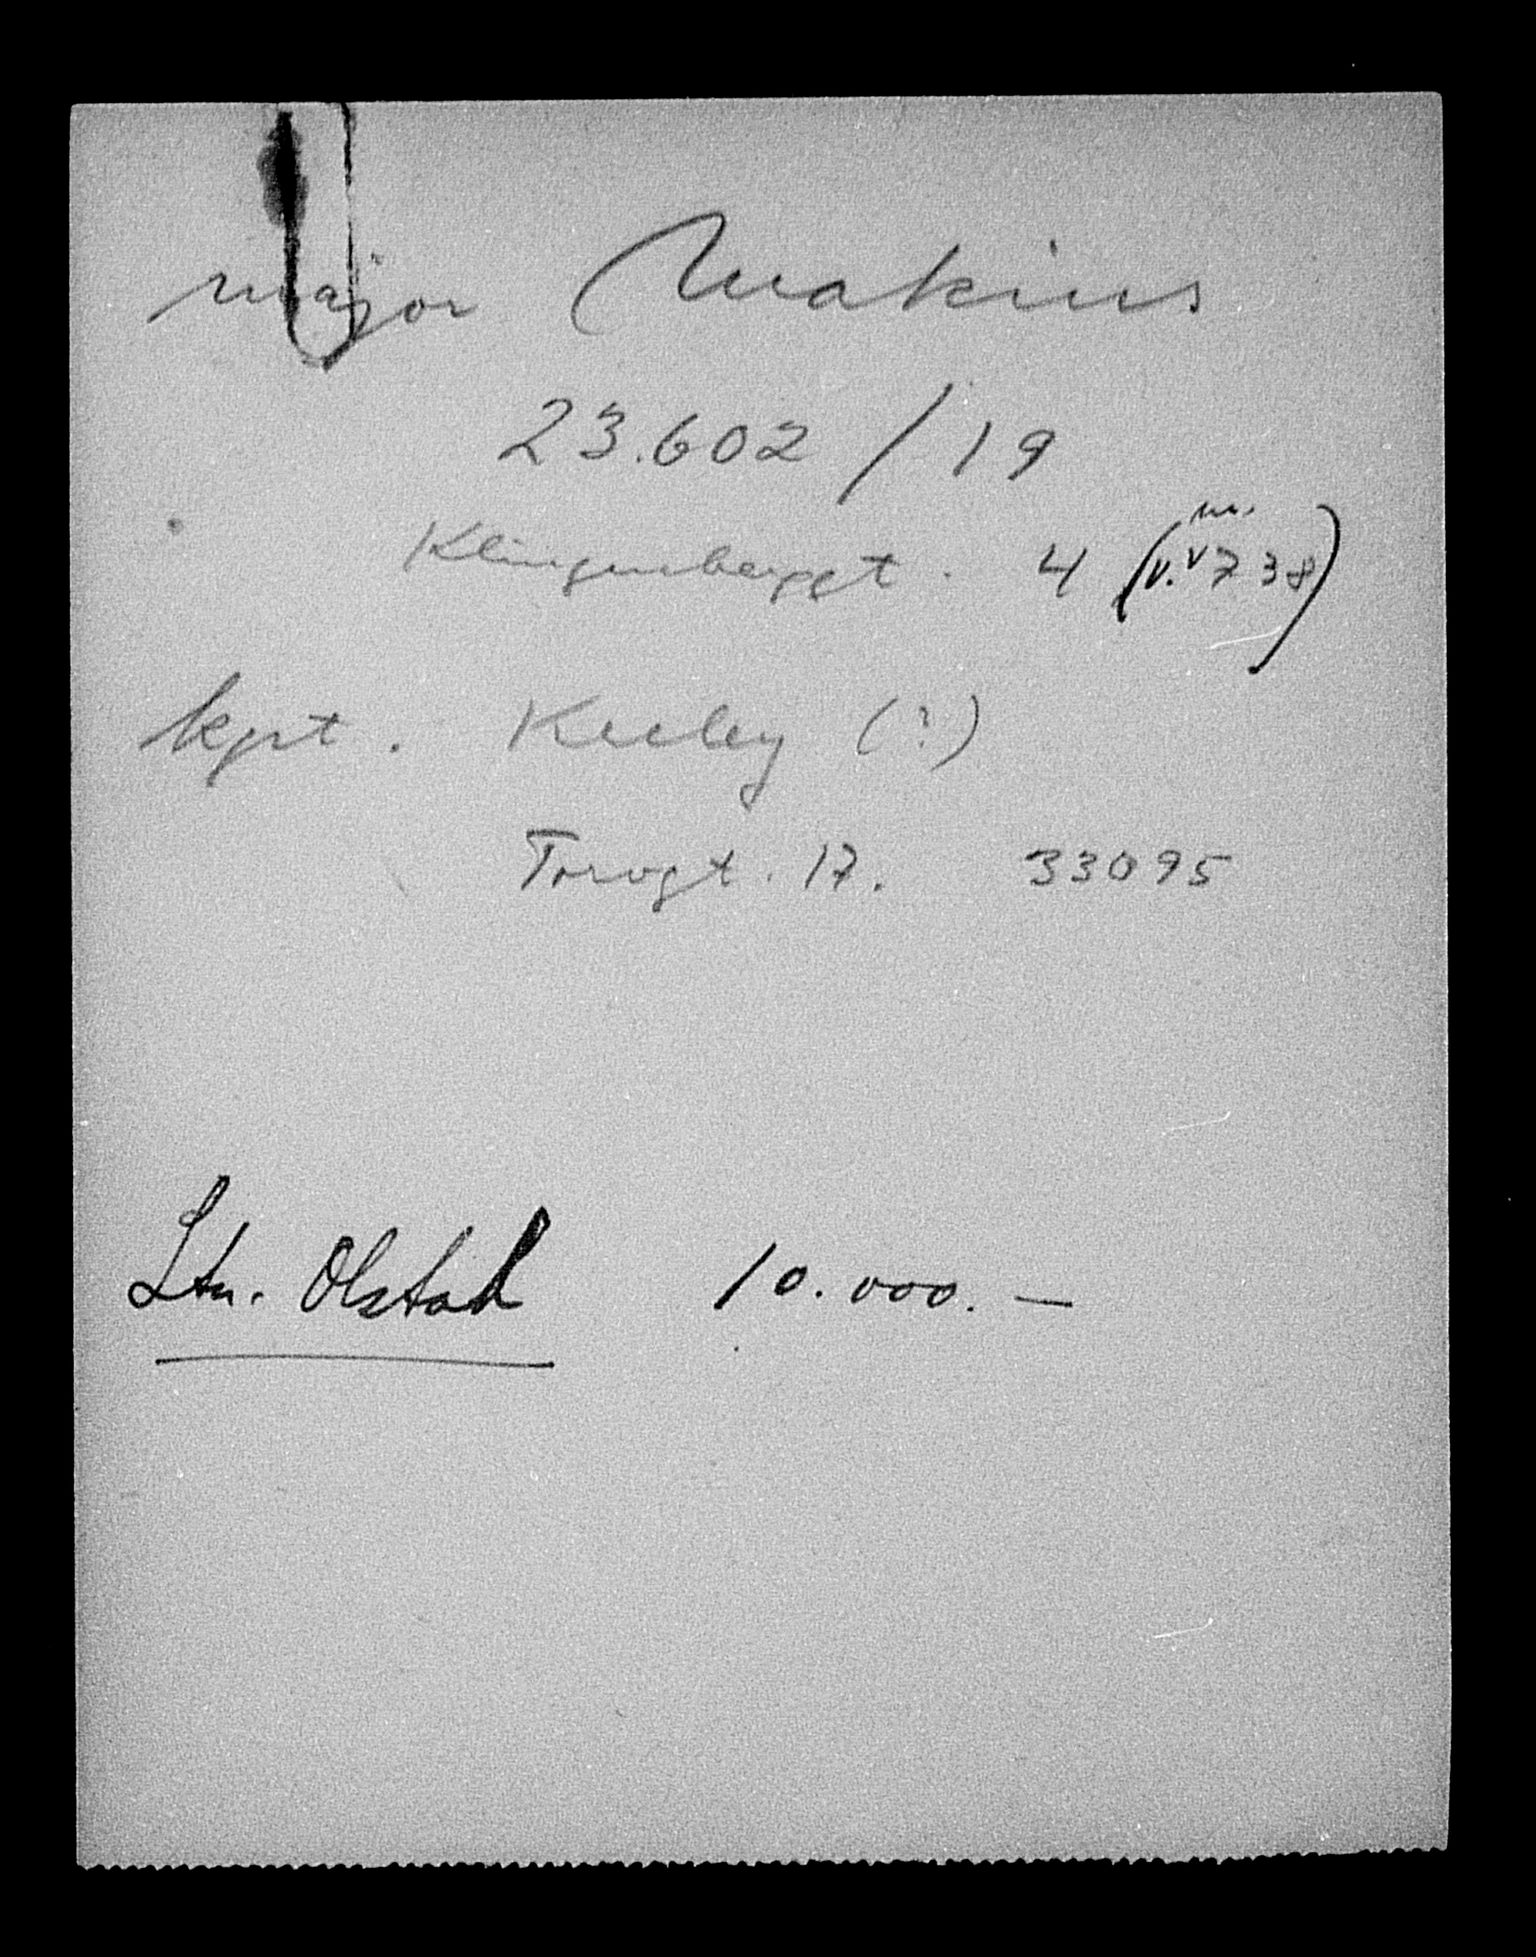 major Makins
23.602 / 19
Klingenberggt. 4 (v. nr. 738)
kpt. Keeley (?)
Torvgt. 17. 33095
Ltn. Olstad 10.000.—